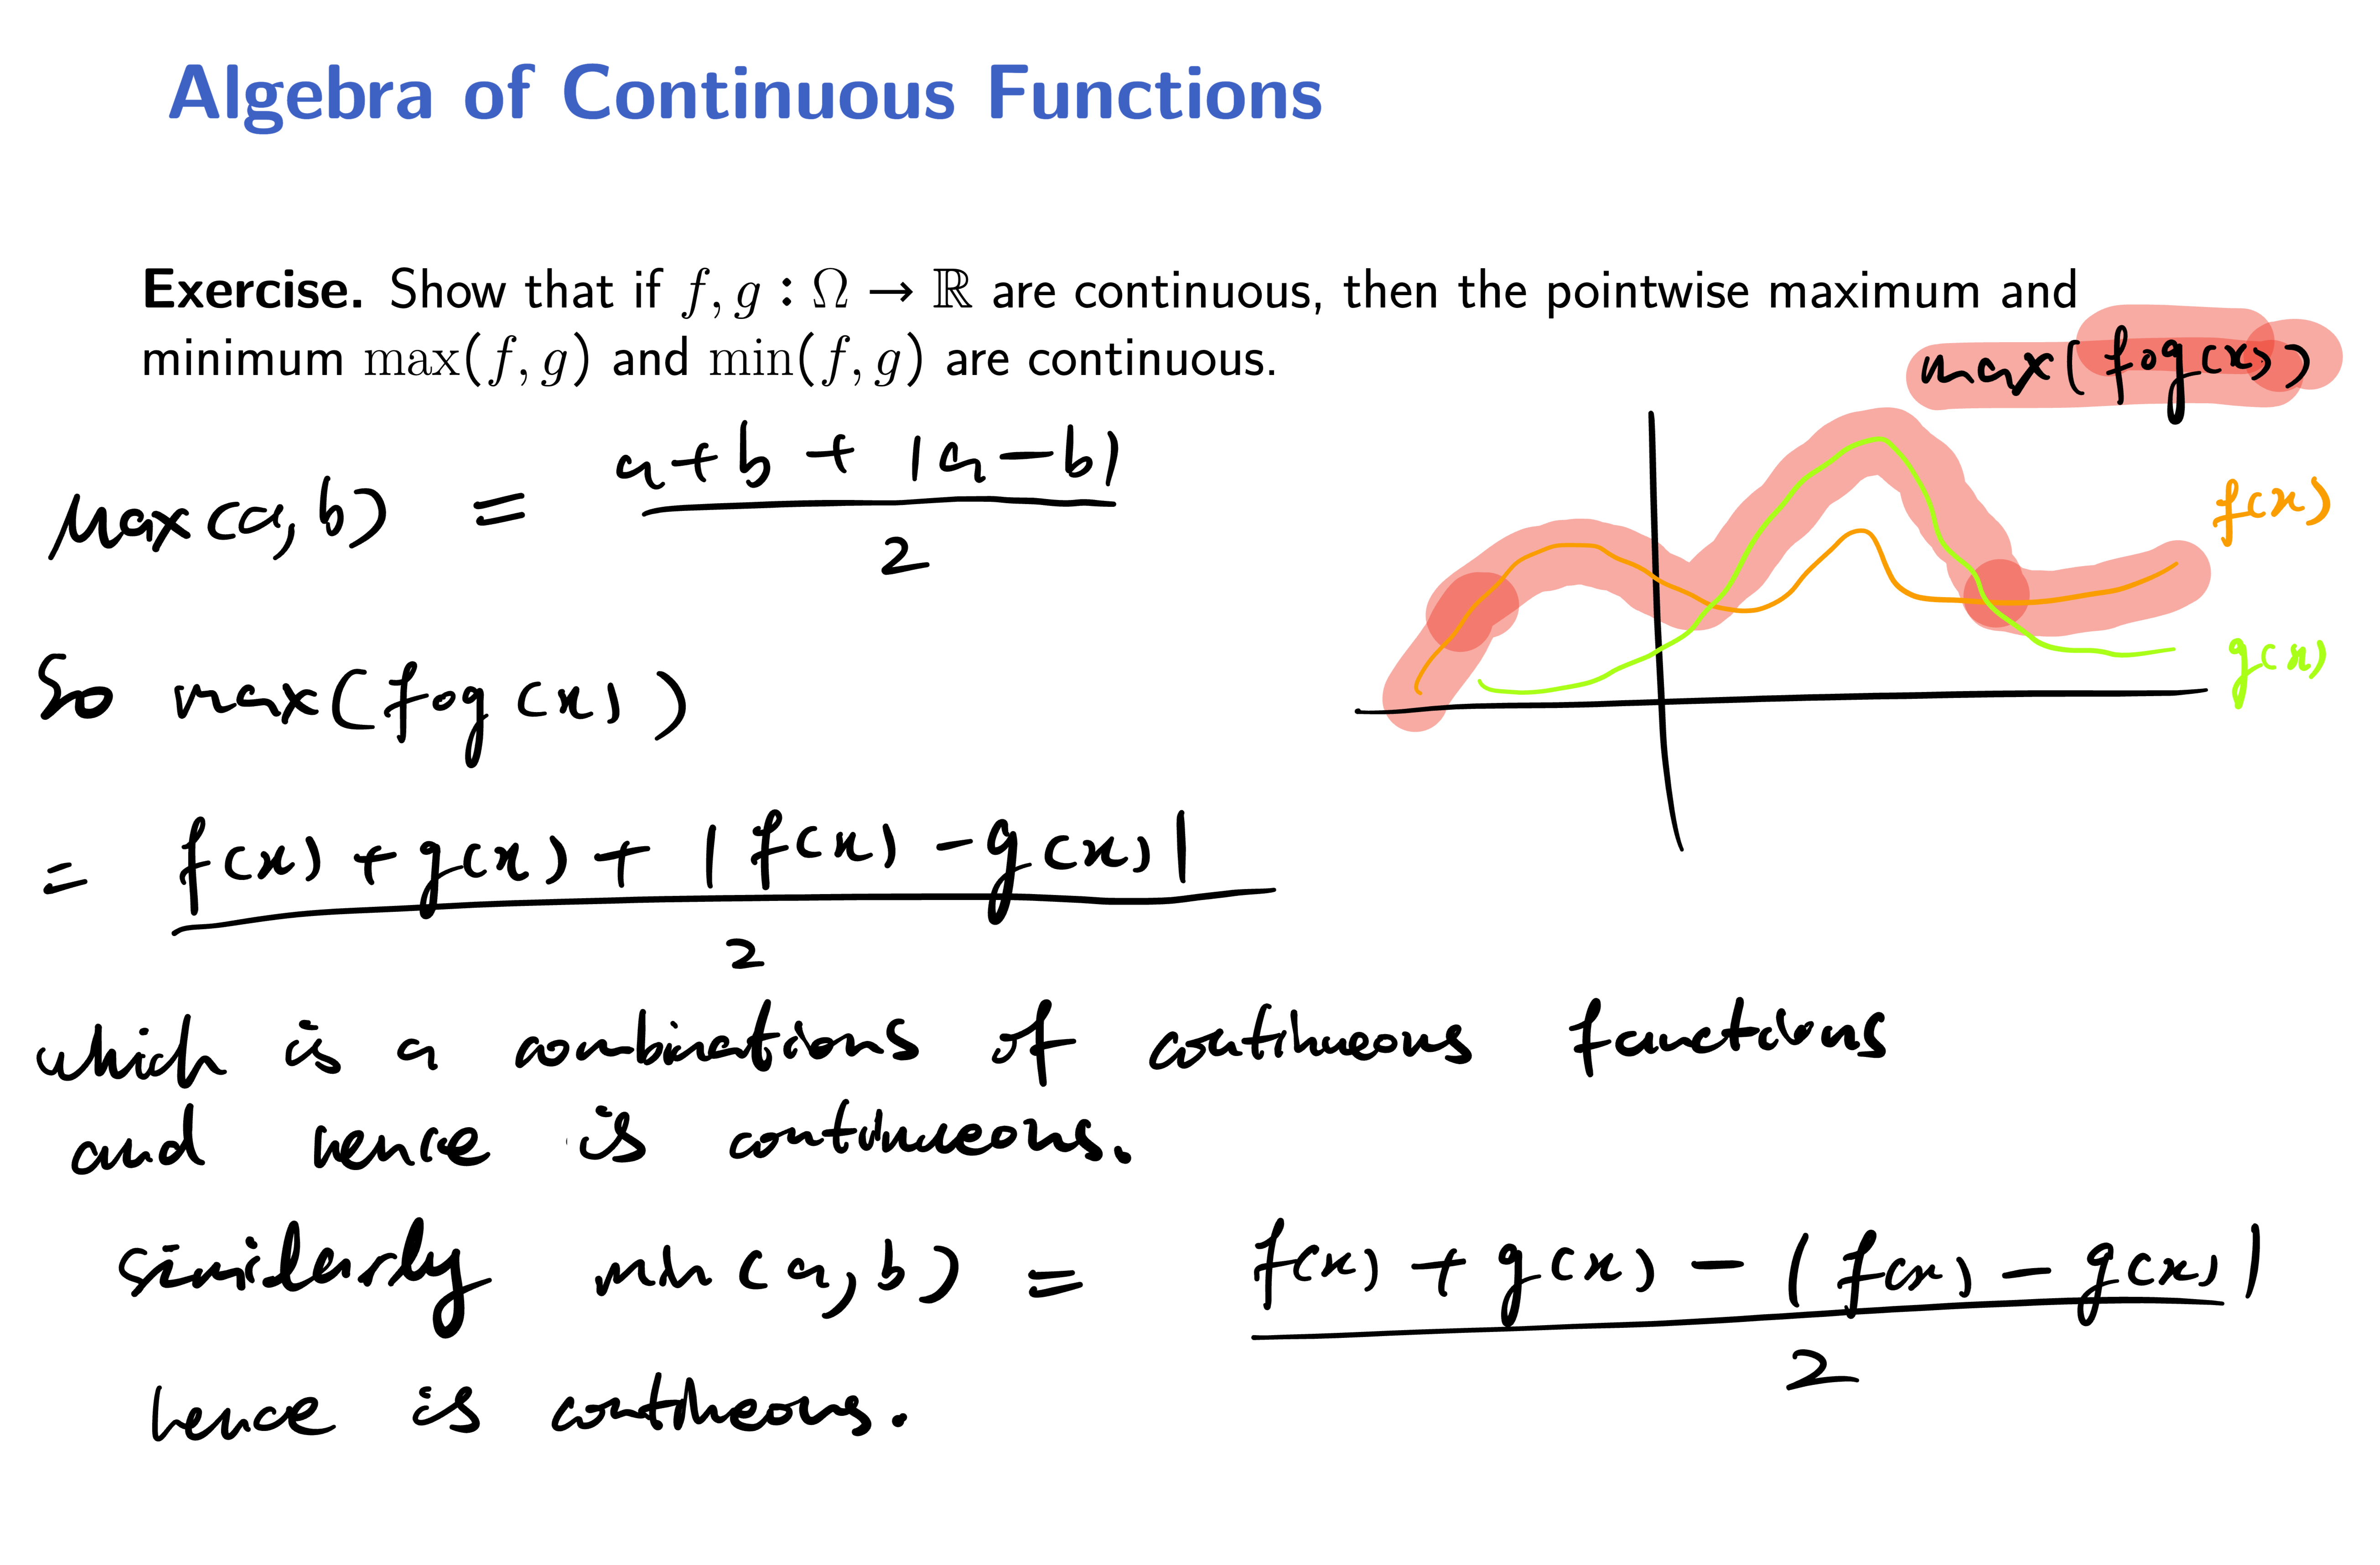 Algebra of Continuous Functions
Exercise. Show that if f, g : Ω → ℝ are continuous, then the pointwise maximum and
minimum max(f, g) and min(f, g) are continuous.
max(fog(x))
Max(a,b) = (a+b + |a-b|)/2
f(x)
g(x)
So max(fog(x))
= (f(x) + g(x) + |f(x) - g(x)|)/2
which is a combinations of continueous functions
and hence is continueous.
similarly min(a,b) = (f(x) + g(x) - |f(x) - g(x)|)/2
hence is continueous.